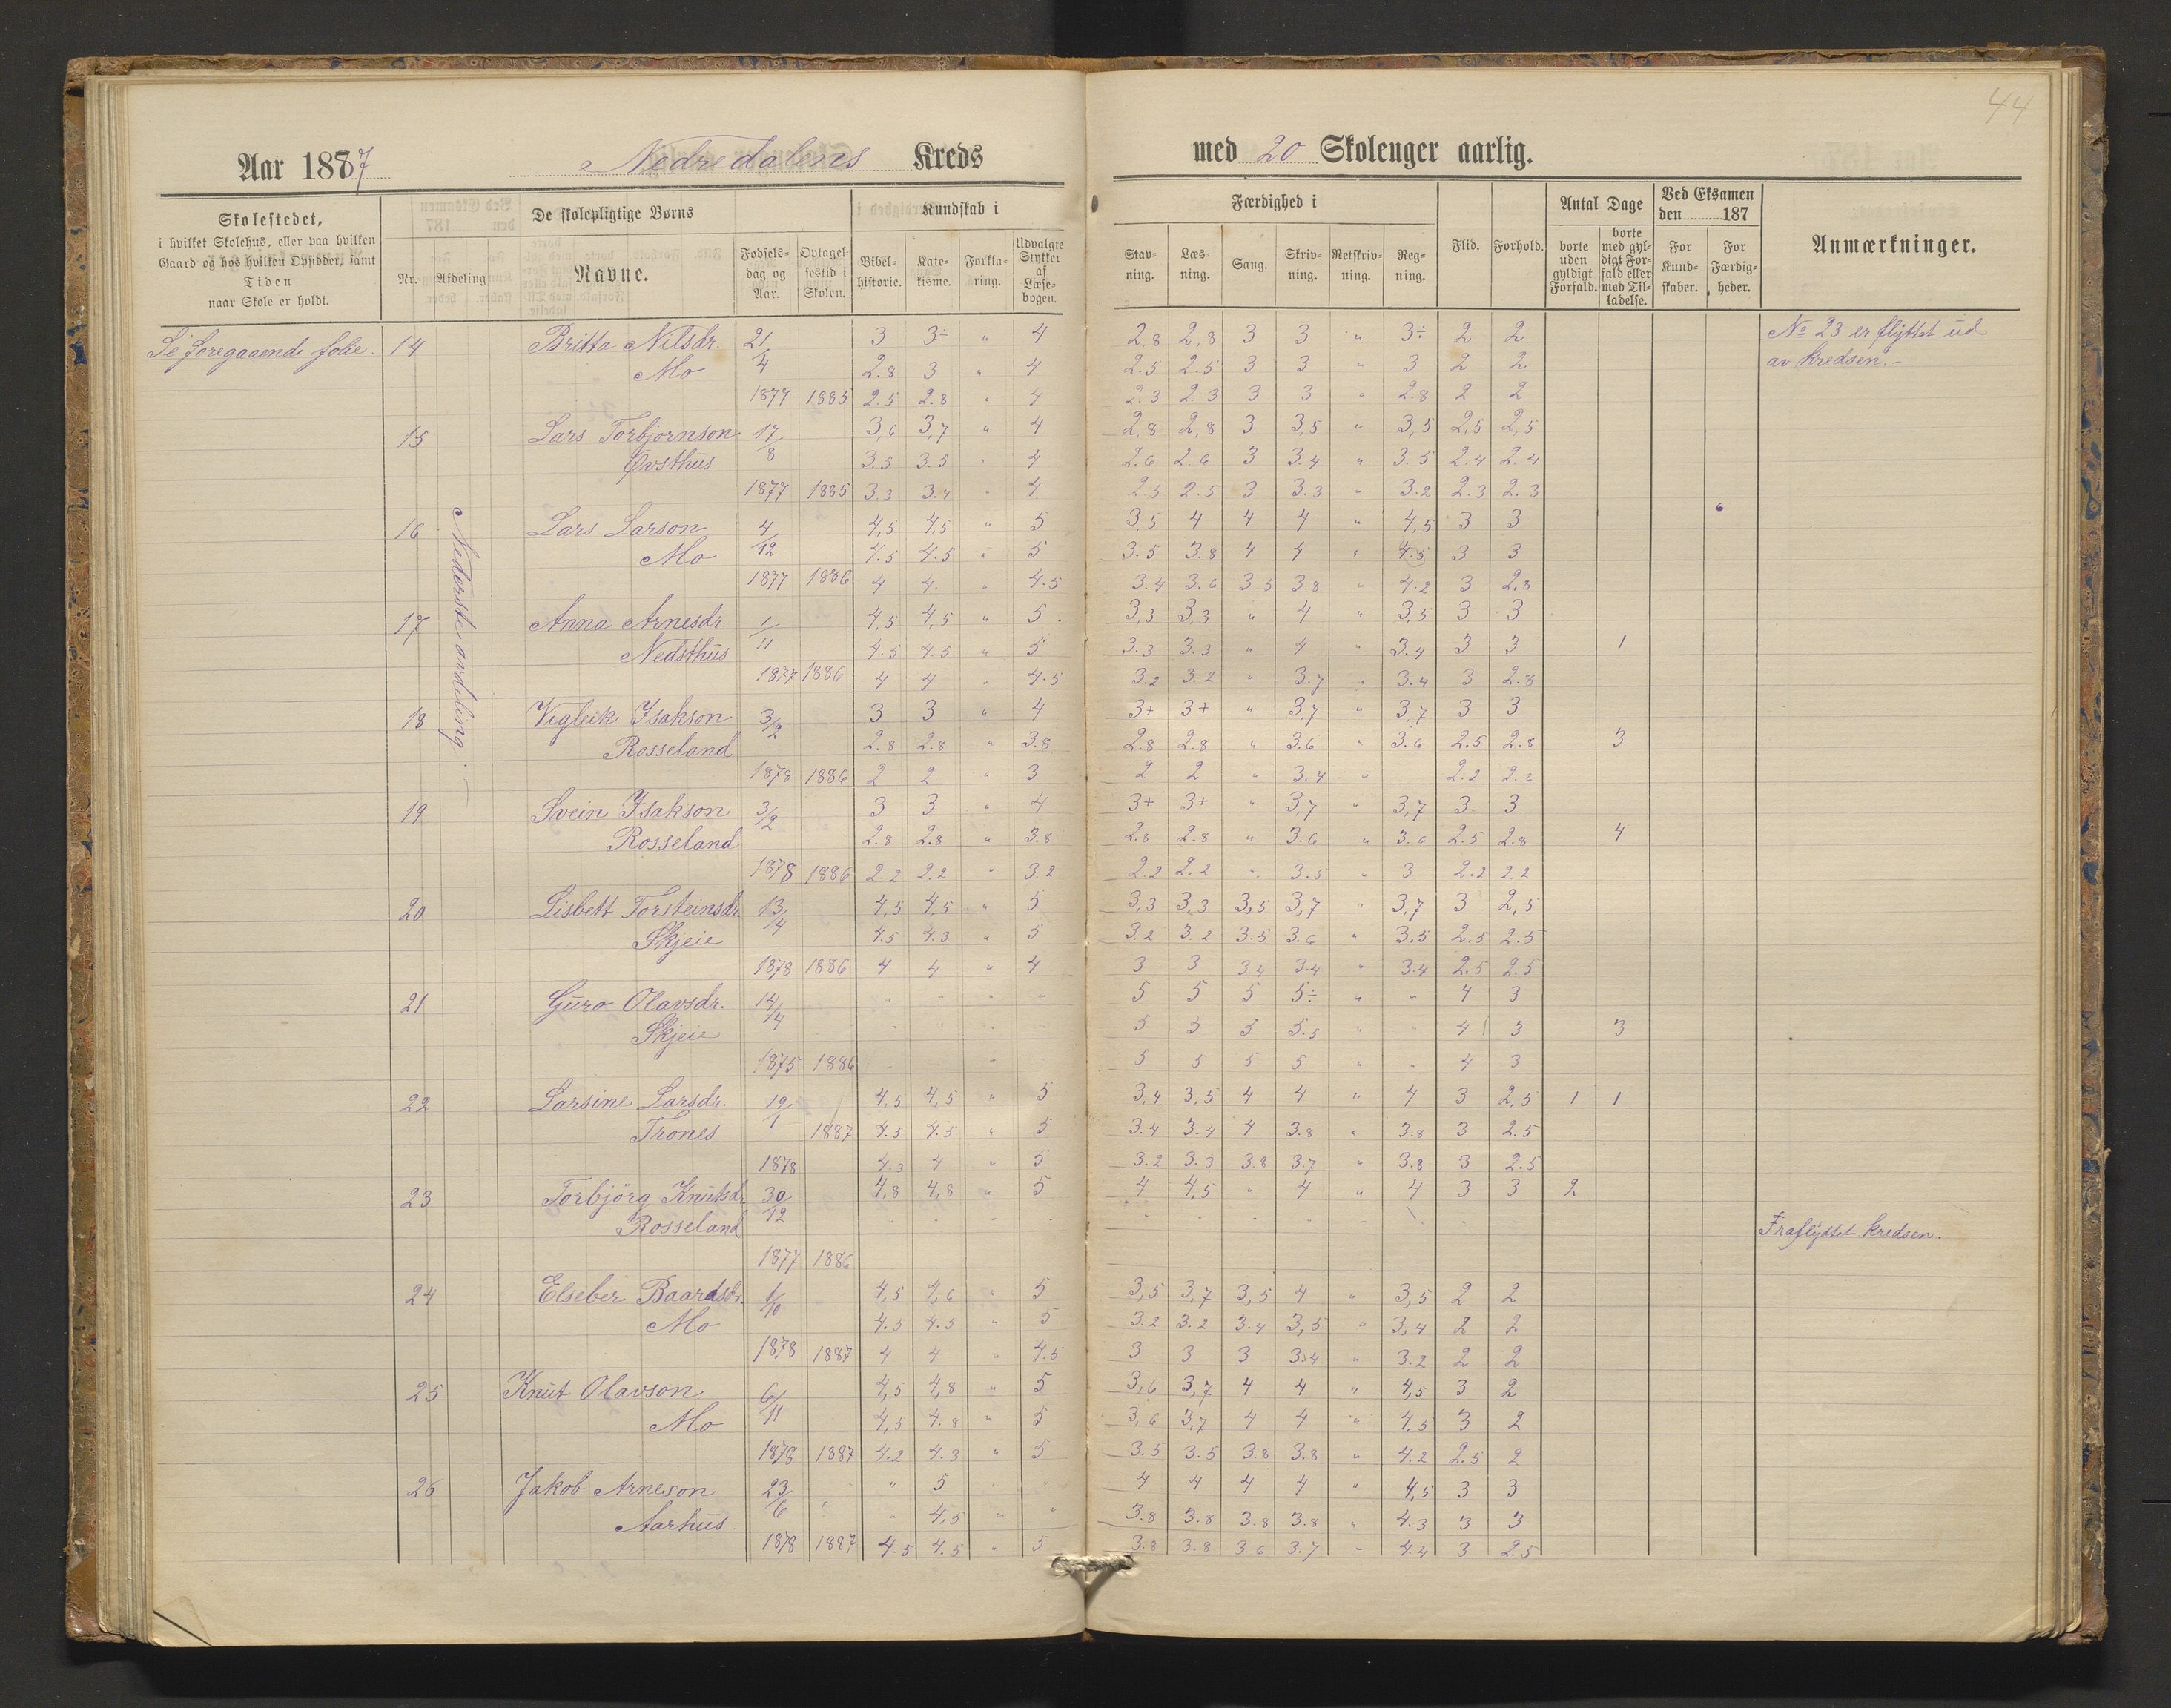 44
Aar 1887 Nedredalens Kreds med 20 Skoleuger aarlig.
Skolestedet,
i hvilket Skolehus, eller paa hvilken
Gaard og hos hvilken Opsidder, samt
Tiden
naar Skole er holdt.
De skolepligtige Børns
Nr. Afdeling Navne. Fødsels-dag og Aar. Optagel-sestid i Skolen.
Kundskab i
Bibel-historie. Kate-kisme. Forkla-ring. Udvalgte Stykker af Læse-bogen.
Færdighed i
Stav-ning. Læs-ning. Sang. Skriv-ning. Retskriv-ning. Reg-ning.
Flid. Forhold.
Antal Dage
borte uden gyldigt Forfald. borte med gyl-digt For-fald eller med Til-ladelse.
Ved Eksamen den 187
For Kund-skaber. For Færdig-heder.
Anmærkninger.
Se foregaaende folie.
Nederste avdeling.
14 Britta Nilsdr. 21/4 3 3÷ " 4 2,8 2,8 3 3 " 3÷ 2 2 No 23 er flyttet ud
Mo 2.8 3 " 4 2.5 2.5 3 3 " 3 2 2 av kredsen.-
1877 1885 2.5 2.8 " 4 2.3 2.3 3 3 " 2.8 2 2
15 Lars Torbjørnson 17/8 3,6 3,7 " 4 2,8 2,8 3 3,5 " 3,5 2,5 2,5
Øvsthus 3.5 3.5 " 4 2.6 2.6 3 3.4 " 3.5 2.4 2.4
1877 1885 3.3 3.4 " 4 2.5 2.5 3 3.3 " 3.2 2.3 2.3
16 Lars Larson 4/12 4,5 4,5 " 5 3,5 4 4 4 " 4,5 3 3
Mo 4.5 4.5 " 5 3.5 3.8 4 4 " 4.5 3 3
1877 1886 4 4 " 4.5 3.4 3.6 3.5 3.8 " 4.2 3 2,8
17 Anna Arnesdr. 1/11 4,5 4,5 " 5 3,3 3,3 " 4 " 3,5 3 3
Nedsthus 4.5 4.5 " 5 3.3 3.3 " 4 " 3.4 3 3 1
1877 1886 4 4 " 4.5 3.2 3.2 " 3.7 " 3.4 3 2.8
18 Vigleik Isakson 3/2 3 3 " 4 3+ 3+ " 3,7 " 3,7 3 3
Rosseland 2.8 2.8 " 3.8 2.8 2.8 " 3.6 " 3.6 2.5 2.8 3
1878 1886 2 2 " 3 2 2 " 3.4 " 2.2 2.2
19 Svein Isakson 3/2 3 3 " 4 3+ 3+ " 3,7 " 3,7 3 3
Rosseland 2.8 2.8 " 3.8 2.8 2.8 " 3.6 " 3.6 2.5 2.8 4
1878 1886 2.2 2.2 " 3.2 2.2 2.2 " 3.5 " 3 2.2 2.2
20 Lisbett Torsteinsdr. 13/4 4,5 4,5 " 5 3,3 3,3 3,5 3,7 " 3,7 3 2,5
Skjeie 4.5 4.3 " 5 3.2 3.2 3.5 3.6 " 3.5 2.5 2.5
1878 1886 4 4 " 4 3 3 3.4 3.4 " 3.4 2.5 2.5
21 Guro Olavsdr. 14/4 " " " " 5 5 5 5÷ " " 4 3
Skjeie 5 5 5 5.5 " 4 3 3
1875 1886 5 5 5 5 " 4 3
22 Larsine Larsdr. 19/1 4,5 4,5 " 5 3,4 3,5 4 4 " 4 3 2,5 1 1
Trones 1887 4.5 4.5 " 5 3.4 3.4 4 3.8 " 3.8 3 2.5
1878 4.3 4 " 5 3.2 3.3 3.8 3.7 " 3.8 3 2.5
23 Torbjörg Knutsdr. 30/12 4,8 4,8 " 5 4 4,5 " 4 " 4 3 3 2
Rosseland Fraflyttet kredsen.
1877 1886
24 Elseber Baardsdr. 1/10 4,5 4,6 " 5 3,5 3,7 3,5 4 " 3,5 2 2
Mo 4.5 4.5 " 5 3.2 3.2 3.4 3,5 " 3,4 2 2
1878 1887 4 4 " 4.5 3 3 3 3.4 " 3.2 2 2
25 Knut Olavson 6/11 4,5 4,8 " 5 3,6 3,7 4 4 " 4,5 3 2
Mo 4,5 4.8 " 5 3,6 3,7 4 4 " 4.5 3 2
1878 1887 4.2 4.3 " 5 3.5 3.5 3.8 3.8 " 4.2 2.5 2
26 Jakob Arneson 23/6 " 5 4 4 4 4 " 4,5 3 3
Aarhus. " 4,5 " " 3.8 3.8 3.8 3.8 " 4.3 3 3
1878 1887 4.5 4.5 " 5 3.8 3.8 3.6 3.7 " 4.4 3 2.5